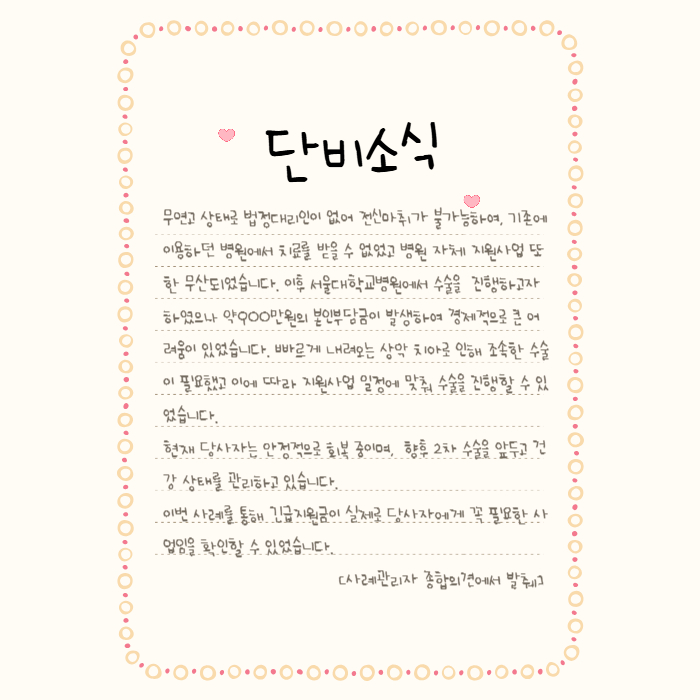 단비소식
무연고 상태로 법정대리인이 없어 전신마취가 불가능하여, 기존에
이용하던 병원에서 치료를 받을 수 없었고 병원 자체 지원사업 또
한 무산되었습니다. 이후 서울대학교병원에서 수술을 진행하고자
하였으나 약900만원의 본인부담금이 발생하여 경제적으로 큰 어
려움이 있었습니다. 빠르게 내려오는 상악 치아로 인해 조속한 수술
이 필요했고 이에 따라 지원사업 일정에 맞춰 수술을 진행할 수 있
었습니다.
현재 당사자는 안정적으로 회복 중이며, 향후 2차 수술을 앞두고 건
강 상태를 관리하고 있습니다.
이번 사례를 통해 긴급지원금이 실제로 당사자에게 꼭 필요한 사
업임을 확인할 수 있었습니다.
[사례관리자 종합의견에서 발췌]